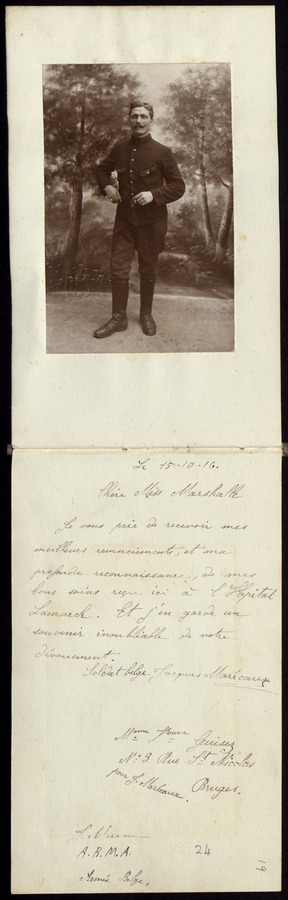 Le 15-10-16.
Chère Miss Marshall
Je vous prie de recevoir mes
meilleurs remerciements, et ma
profonde reconnaissance, de mes
bons soins reçu ici à l'Hôpital
Lamarck. Et j'en garde un
souvenir inoubliable de votre
dévouement.
Soldat belge. Jacques Marécaux
N° 3 Rue St Nicolas
pour J. Marécaux. Bruges.
A. R. M. A. 24
Armée Belge.
19